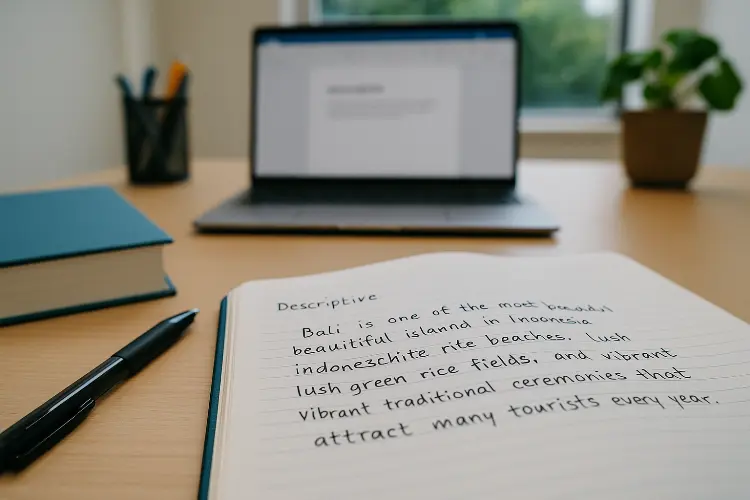 Descriptive
Bali is one of the most
beauitiful islannd in Inoonesia
indoneszchite rite beaches. lush
lush green rice fields, and vibrant
vibrant traditional ceremonies that
attract many tourists every year.